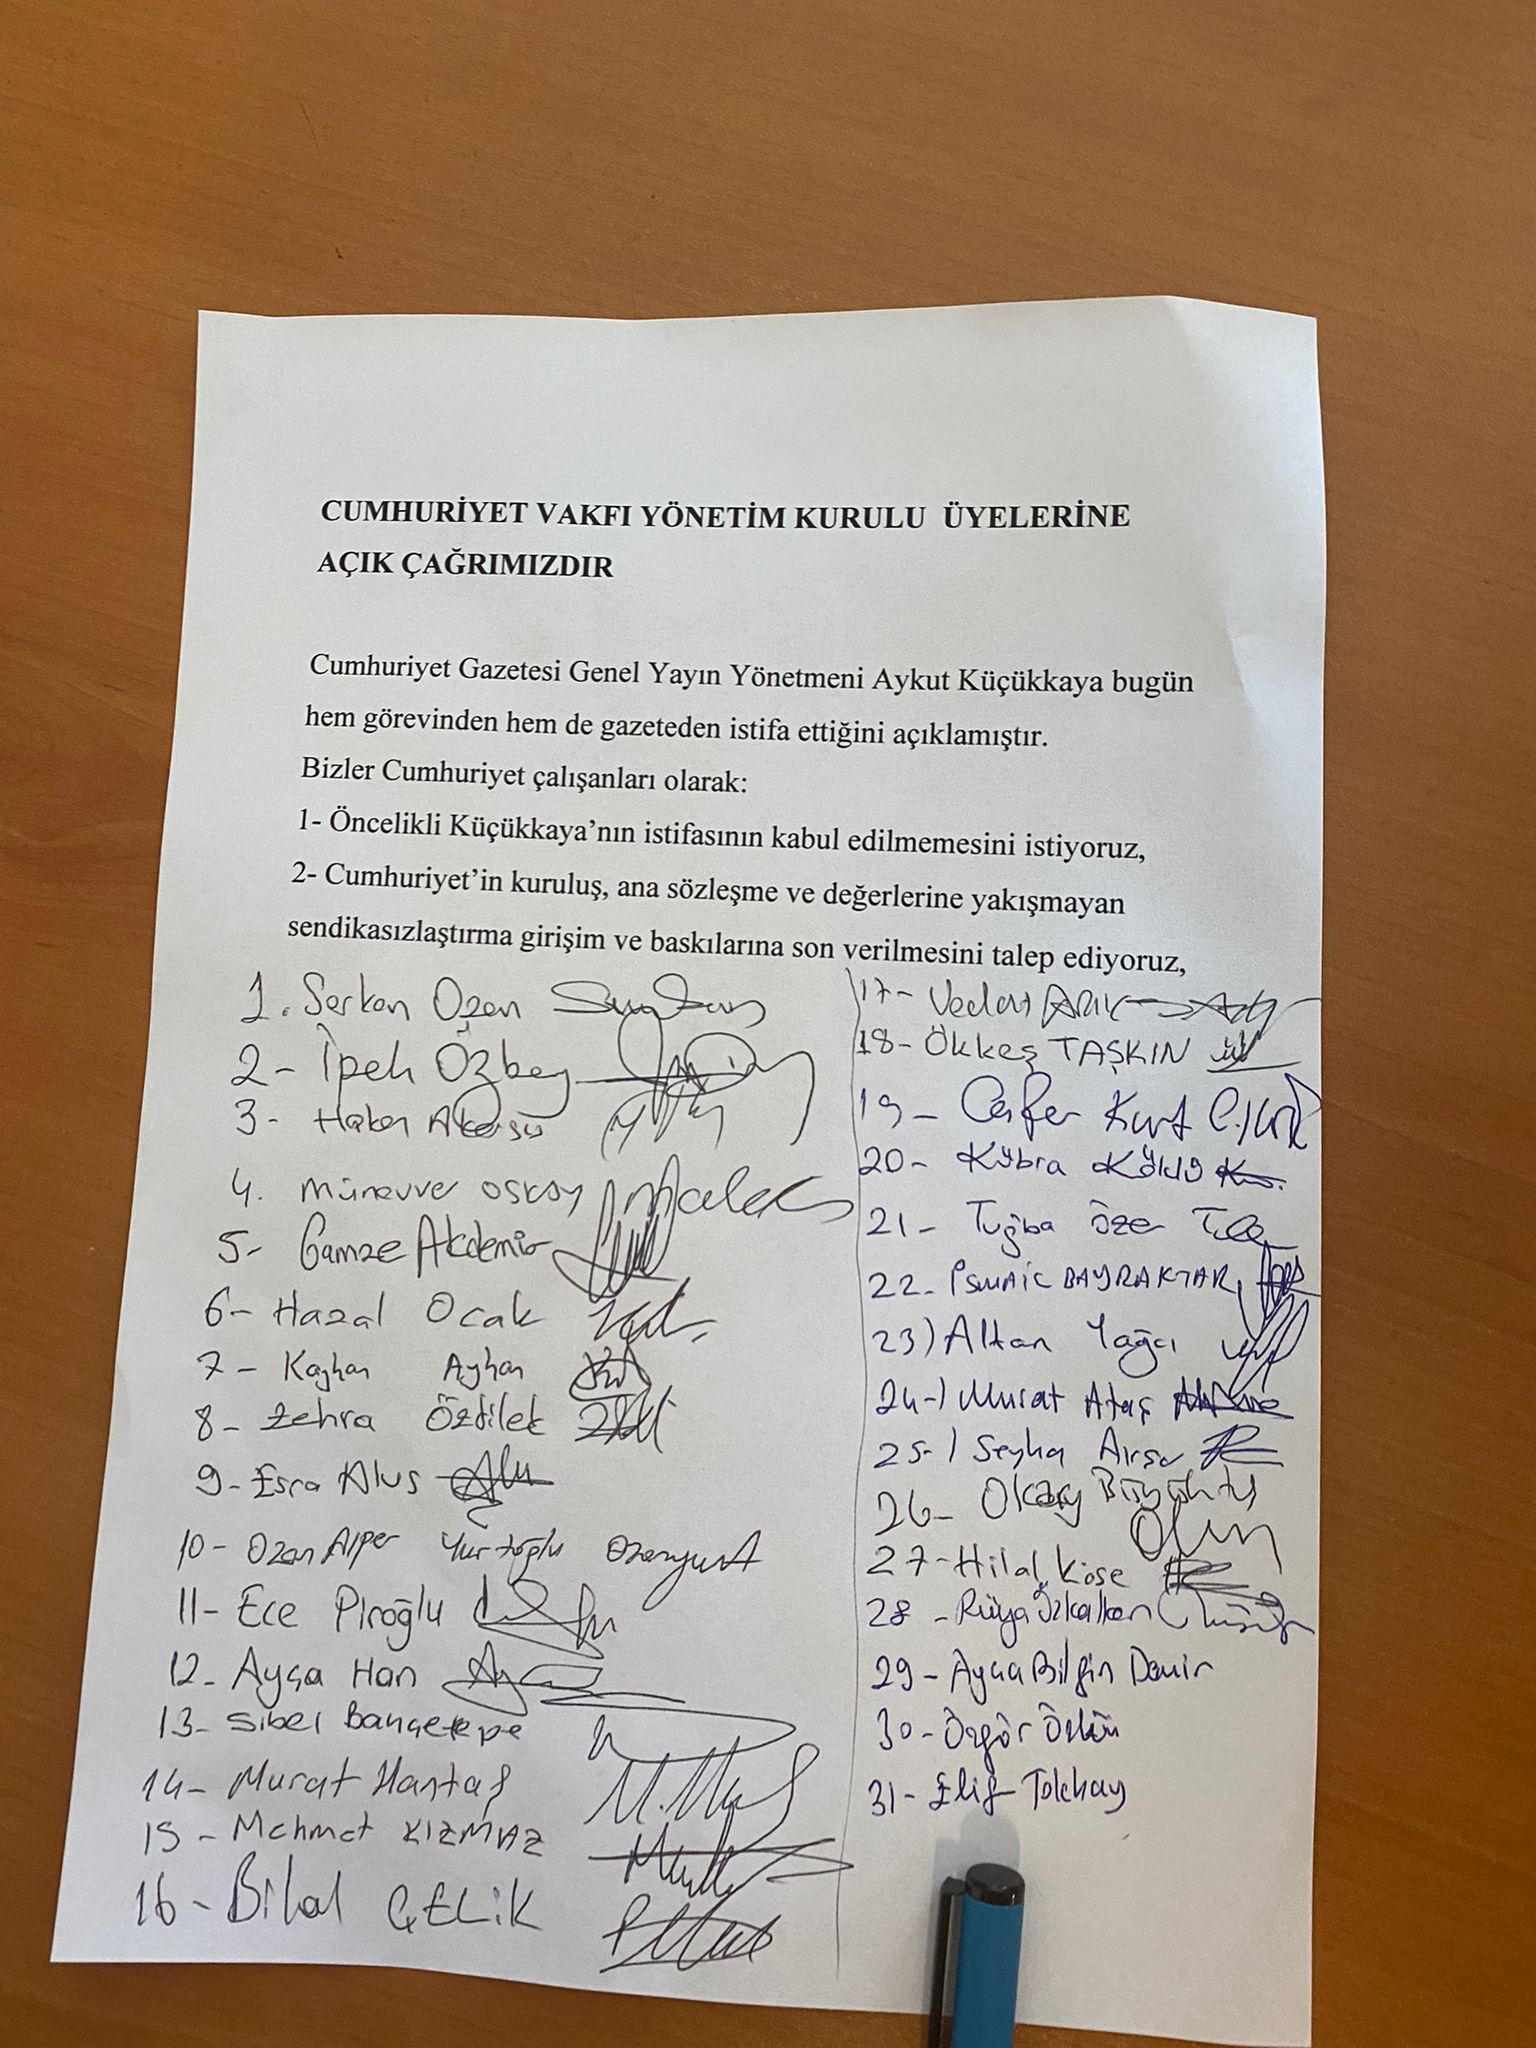 CUMHURİYET VAKFI YÖNETİM KURULU ÜYELERİNE
AÇIK ÇAĞRIMIZDIR
Cumhuriyet Gazetesi Genel Yayın Yönetmeni Aykut Küçükkaya bugün
hem görevinden hem de gazeteden istifa ettiğini açıklamıştır.
Bizler Cumhuriyet çalışanları olarak:
1- Öncelikli Küçükkaya’nın istifasının kabul edilmemesini istiyoruz,
2- Cumhuriyet’in kuruluş, ana sözleşme ve değerlerine yakışmayan
sendikasızlaştırma girişim ve baskılarına son verilmesini talep ediyoruz,
1. Serkan Ozan
2- İpek Özbey
3- Hakan Akarsu
4. Münevver Oskay
5- Gamze Akdemir
6- Hazal Ocak
7- Kayhan Ayhan
8- Zehra Özdilek
9- Esra Alus
10- Ozan Alper Yurtoğlu
11- Ece Piroğlu
12- Ayça Han
13- Sibel Bahçetepe
14- Murat Hantaş
15- Mehmet KIZMAZ
16- Bilal ÇELİK
17- Vedat ARIK
18- Ökkeş TAŞKIN
19- Cafer Kurt
20- Kübra
21- Tuğba Özer
22- İsmail BAYRAKTAR
23) Altan Yağcı
24-) Murat Ataş
25-) Seyhan
26- Olcay
27- Hilal Köse
28- Rüya Özkalkan
29- Ayça Bilgin Demir
30- Özgür
31- Elif Tokbay